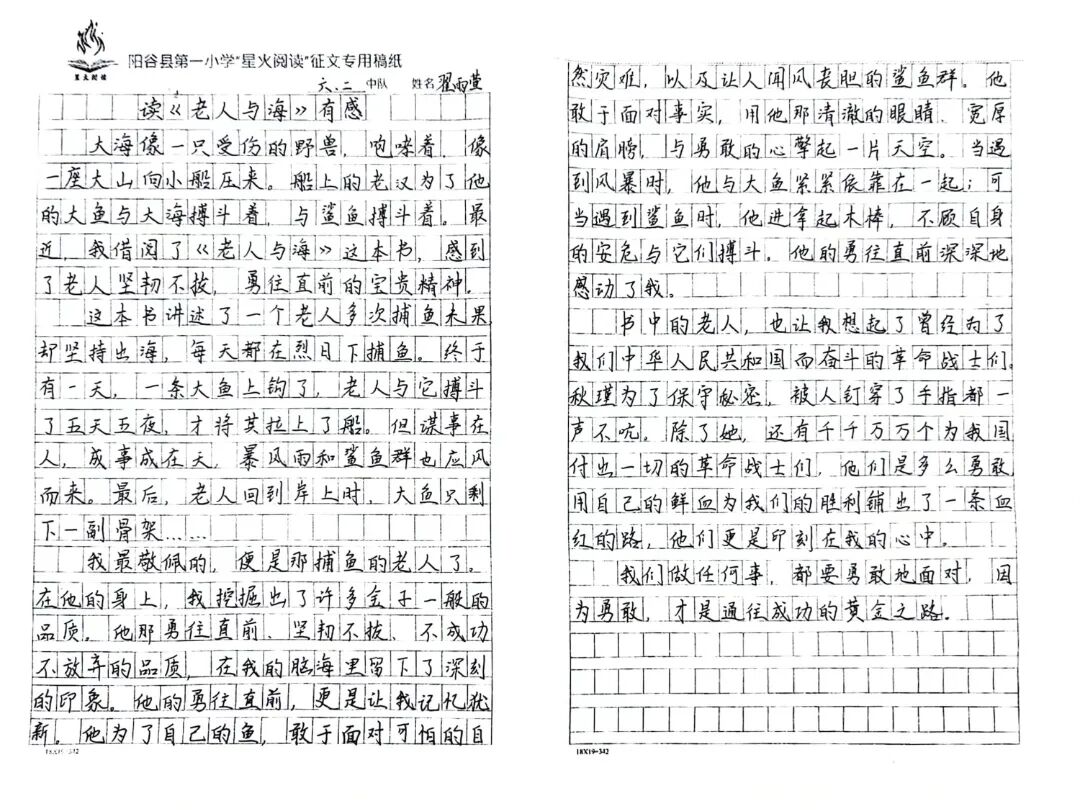 星火阅读
阳谷县第一小学“星火阅读”征文专用稿纸
六.二 中队 姓名 翟雨萱
读《老人与海》有感
大海像一只受伤的野兽，咆哮着，像
一座大山向小船压来。船上的老汉为了他
的大鱼与大海搏斗着，与鲨鱼搏斗着。最
近，我借阅了《老人与海》这本书，感到
了老人坚韧不拔，勇往直前的宝贵精神。
这本书讲述了一个老人多次捕鱼未果
却坚持出海，每天都在烈日下捕鱼。终于
有一天，一条大鱼上钩了，老人与它搏斗
了五天五夜，才将其拉上了船。但谋事在
人，成事成在天，暴风雨和鲨鱼群也应风
而来。最后，老人回到岸上时，大鱼只剩
下一副骨架……
我最敬佩的，便是那捕鱼的老人了。
在他的身上，我挖掘出了许多金子一般的
品质。他那勇往直前、坚韧不拔、不成功
不放弃的品质，在我的脑海里留下了深刻
的印象。他的勇往直前，更是让我记忆犹
新，他为了自己的鱼，敢于面对可怕的自
18X19=342
然灾难，以及让人闻风丧胆的鲨鱼群。他
敢于面对事实，用他那清澈的眼睛、宽厚
的肩膀，与勇敢的心擎起一片天空。当遇
到风暴时，他与大鱼紧紧依靠在一起；可
当遇到鲨鱼时，他进拿起木棒，不顾自身
的安危与它们搏斗。他的勇往直前深深地
感动了我。
书中的老人，也让我想起了曾经为了
我们中华人民共和国而奋斗的革命战士们。
秋瑾为了保守秘密，被人钉穿了手指都一
声不吭。除了她，还有千千万万个为我国
付出一切的革命战士们，他们是多么勇敢
用自己的鲜血为我们的胜利铺出了一条血
红的路，他们更是印刻在我的心中。
我们做任何事，都要勇敢地面对，因
为勇敢，才是通往成功的黄金之路。
18X19=342